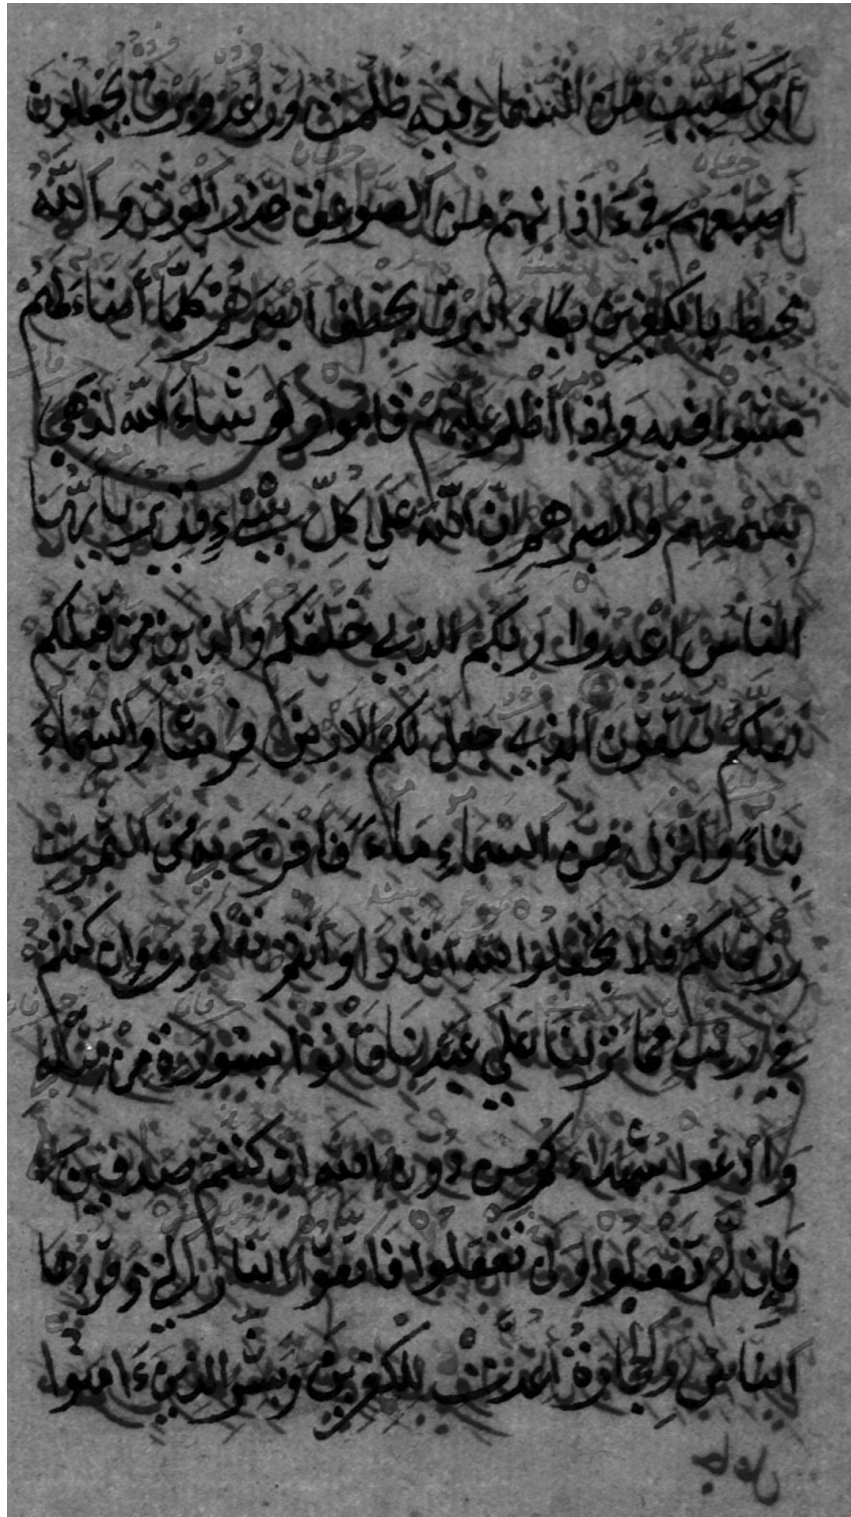 أو كصيب من السماء فيه ظلمت ورعد وبرق يجعلون
أصبعهم في ءاذانهم من الصوعق حذر الموت والله
محيط بالكفرين يكاد البرق يخطف أبصرهم كلما أضاء لهم
مشوا فيه وإذا أظلم عليهم قاموا ولو شاء الله لذهب
بسمعهم وأبصرهم إن الله على كل شيء قدير يأيها
الناس اعبدوا ربكم الذي خلقكم والذين من قبلكم
لعلكم تتقون الذي جعل لكم الأرض فرشا والسماء
بناء وأنزل من السماء ماء فأخرج به من الثمرت
رزقا لكم فلا تجعلوا لله أندادا وأنتم تعلمون وإن كنتم
في ريب مما نزلنا على عبدنا فأتوا بسورة من مثله
وادعوا شهداءكم من دون الله إن كنتم صدقين
فإن لم تفعلوا ولن تفعلوا فاتقوا النار التي وقودها
الناس والحجارة أعدت للكفرين وبشر الذين ءامنوا